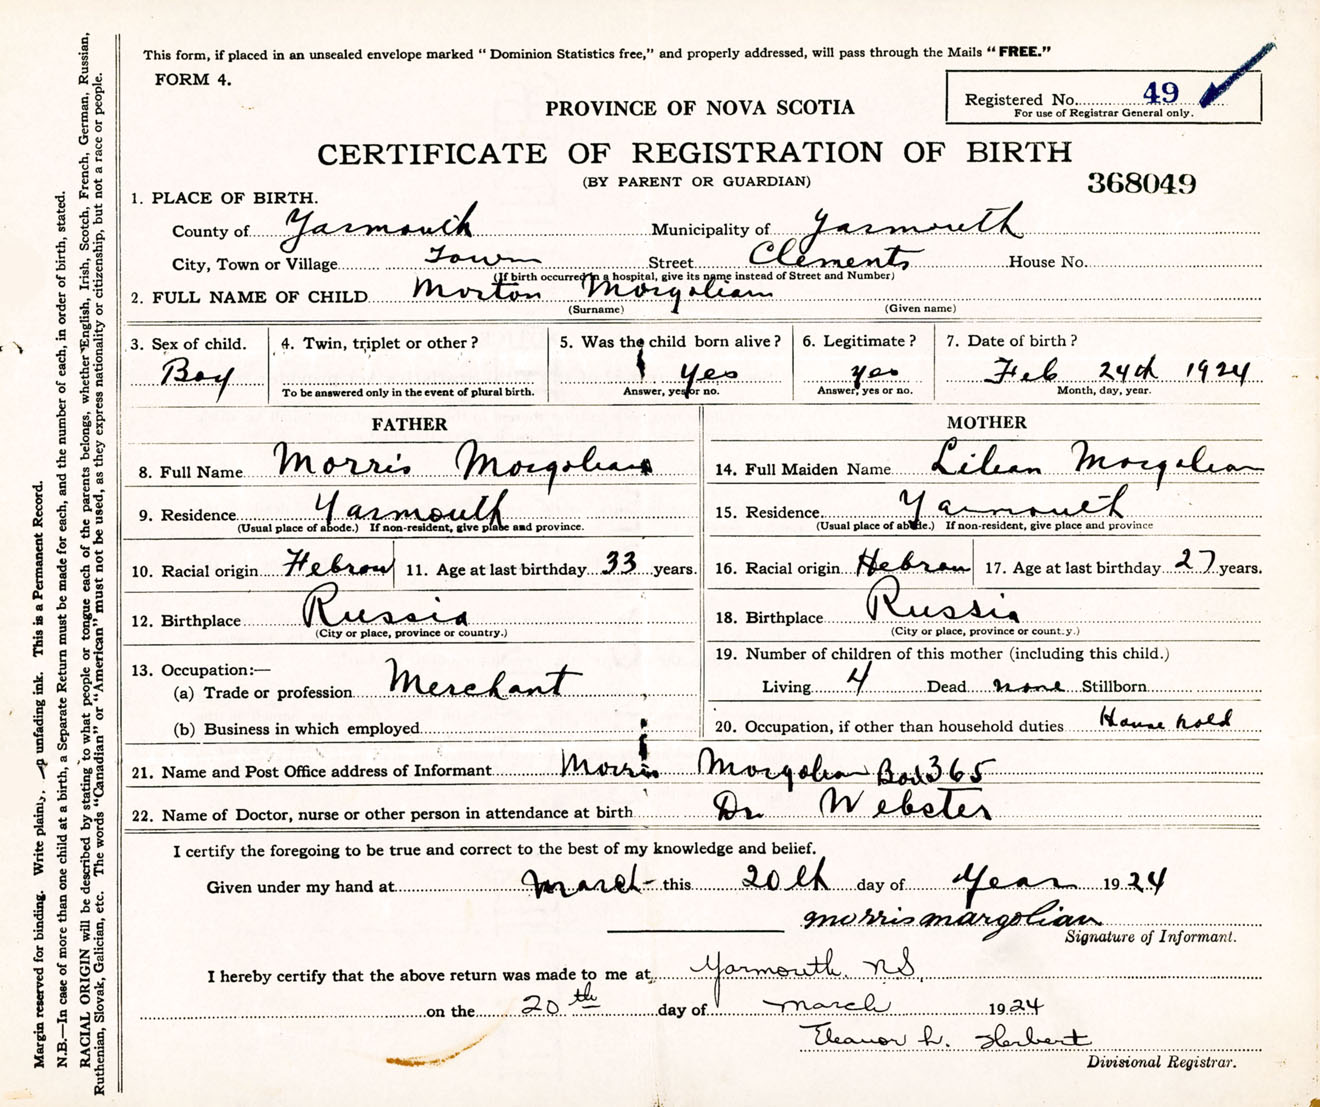 This form, if placed in an unsealed envelope marked “Dominion Statistics free,” and properly addressed, will pass through the Mails “FREE.”
FORM 4.
Registered No. 49
For use of Registrar General only.
PROVINCE OF NOVA SCOTIA
CERTIFICATE OF REGISTRATION OF BIRTH
(BY PARENT OR GUARDIAN)
368049
1. PLACE OF BIRTH.
County of Yarmouth Municipality of Yarmouth
City, Town or Village Town Street Clements House No.
(If birth occurred in a hospital, give its name instead of Street and Number)
2. FULL NAME OF CHILD Morton Morgolian
(Surname) (Given name)
3. Sex of child. Boy
4. Twin, triplet or other?
To be answered only in the event of plural birth.
5. Was the child born alive? Yes
Answer, yes or no.
6. Legitimate? yes
Answer, yes or no.
7. Date of birth? Feb 24th 1924
Month, day, year.
FATHER
8. Full Name Morris Morgolian
9. Residence Yarmouth
(Usual place of abode.) If non-resident, give place and province.
10. Racial origin Hebrow 11. Age at last birthday 33 years.
12. Birthplace Russia
(City or place, province or country.)
13. Occupation:—
(a) Trade or profession Merchant
(b) Business in which employed
MOTHER
14. Full Maiden Name Lilean Morgolean
15. Residence Yarmouth
(Usual place of abode.) If non-resident, give place and province
16. Racial origin Hebrow 17. Age at last birthday 27 years.
18. Birthplace Russia
(City or place, province or county.)
19. Number of children of this mother (including this child.)
Living 4 Dead none Stillborn
20. Occupation, if other than household duties House hold
21. Name and Post Office address of Informant Morris Morgolean Box 365
22. Name of Doctor, nurse or other person in attendance at birth Dr. Webster
I certify the foregoing to be true and correct to the best of my knowledge and belief.
Given under my hand at March this 20th day of Year 1924
morris margolian
Signature of Informant.
I hereby certify that the above return was made to me at Yarmouth. N.S,
on the 20th day of March 1924
Eleanor L. Herbert
Divisional Registrar.
Margin reserved for binding. Write plainly, unfading ink. This is a Permanent Record.
N.B.—In case of more than one child at a birth, a Separate Return must be made for each, and the number of each, in order of birth, stated.
RACIAL ORIGIN will be described by stating to what people or tongue each of the parents belongs, whether English, Irish, Scotch, French, German, Russian,
Ruthenian, Slovak, Galician, etc. The words “Canadian” or “American” must not be used, as they express nationality or citizenship, but not a race or people.